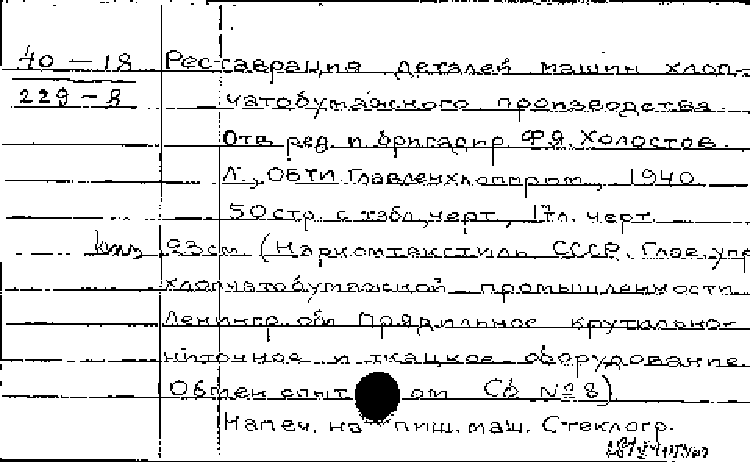 40 – 18 Реставрация деталей машин хлоп-
229 – 8 чатобумажного производства
Отв. ред. и бригадир Ф.Я. Холостов.
Л., ОБТИ Главленхлоппром, 1940
50 стр. с табл., черт., 17 л. черт.
23 см (Наркомтекстиль СССР. Глав. упр
хлопчатобумажной промышленности
Ленингр. обл. Прядильное крутильно-
ниточное и ткацкое оборудование.
Обмен опытом Сб №28)
Напеч. на пиш. маш. Стеклогр.